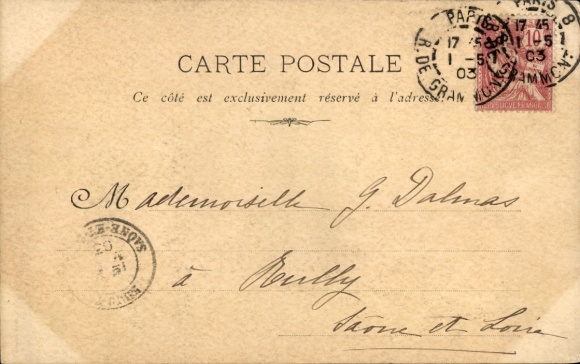 PARIS 8 PARIS 8
17 45 17 45
1 - 5 1 - 5
03 03
R. DE GRAMMONT GRAMMONT
10
CARTE POSTALE
Ce côté est exclusivement réservé à l'adresse.
Mademoiselle G. Dalmas
SAÔNE-E
03
à Rully
Saône et Loire